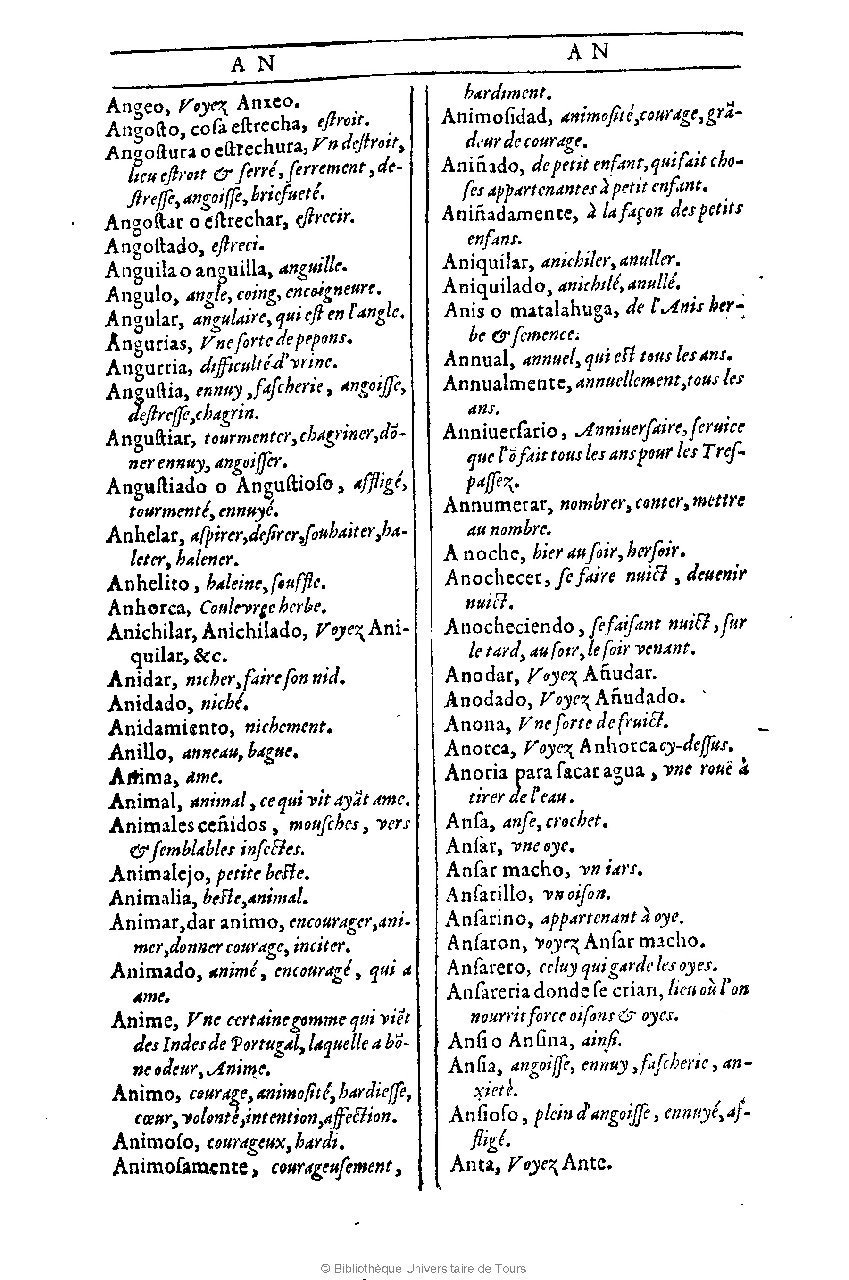 A N
Angeo, Voyez Anxeo.
Angoſto, coſa eſtrecha, eſtroit.
Angoſtura o eſtrechura, Vn deſtroit,
lieu eſtroit & ſerré, ſerrement, de-
ſtreſſe, angoiſſe, briefueté.
Angoſtar o eſtrechar, eſtrecir.
Angoſtado, eſtreci.
Anguila o anguilla, anguille.
Angulo, angle, coing, encoigneure.
Angular, angulaire, qui eſt en l'angle.
Angurias, Vne ſorte de pepons.
Angurria, difficulté d'vrine.
Anguſtia, ennuy, faſcherie, angoiſſe,
deſtreſſe, chagrin.
Anguſtiar, tourmenter, chagriner, dõ-
ner ennuy, angoiſſer.
Anguſtiado o Anguſtioſo, affligé,
tourmenté, ennuyé.
Anhelar, aſpirer, deſirer, ſouhaiter, ha-
leter, halener.
Anhelito, haleine, ſouffle.
Anhorca, Coulevrge herbe.
Anichilar, Anichilado, Voyez Ani-
quilar, &c.
Anidar, nicher, faire ſon nid.
Anidado, niché.
Anidamiento, nichement.
Anillo, anneau, bague.
Anima, ame.
Animal, animal, ce qui vit ayãt ame.
Animales ceñidos, mouſches, vers
& ſemblables inſectes.
Animalejo, petite beſte.
Animalia, beſte, animal.
Animar, dar animo, encourager, ani-
mer, donner courage, inciter.
Animado, animé, encouragé, qui a
ame.
Anime, Vne certaine gomme qui viẽt
des Indes de Portugal, laquelle a bõ-
ne odeur, Anime.
Animo, courage, animoſité, hardieſſe,
cœur, volonté, intention, affection.
Animoſo, courageux, hardi.
Animoſamente, courageuſement,
A N
hardiment.
Animoſidad, animoſité, courage, grã-
deur de courage.
Aniñado, de petit enfant, qui fait cho-
ſes appartenantes à petit enfant.
Aniñadamente, à la façon des petits
enfans.
Aniquilar, anichiler, anuller.
Aniquilado, anichilé, anullé.
Anis o matalahuga, de l'Anis her-
be & ſemence.
Annual, annuel, qui eſt tous les ans.
Annualmente, annuellement, tous les
ans.
Anniuerſario, Anniuerſaire, ſeruice
que l'õ fait tous les ans pour les Treſ-
paſſez.
Annumerar, nombrer, conter, mettre
au nombre.
A noche, hier au ſoir, herſoir.
Anochecer, ſe faire nuict, deuenir
nuict.
Anocheciendo, ſe faiſant nuict, ſur
le tard, au ſoir, le ſoir venant.
Anodar, Voyez Añudar.
Anodado, Voyez Añudado.
Anona, Vne ſorte de fruict.
Anorca, Voyez Anhorca cy-deſſus.
Anoria para ſacar agua, vne rouë à
tirer de l'eau.
Anſa, anſe, crochet.
Anſar, vne oye.
Anſar macho, vn iars.
Anſarillo, vn oiſon.
Anſarino, appartenant à oye.
Anſaron, voyez Anſar macho.
Anſarero, celuy qui garde les oyes.
Anſareria donde ſe crian, lieu où l'on
nourrit force oiſons & oyes.
Anſi o Anſina, ainſi.
Anſia, angoiſſe, ennuy, faſcherie, an-
xieté.
Anſioſo, plein d'angoiſſe, ennuyé, af-
fligé.
Anta, Voyez Ante.
© Bibliothèque Universitaire de Tours